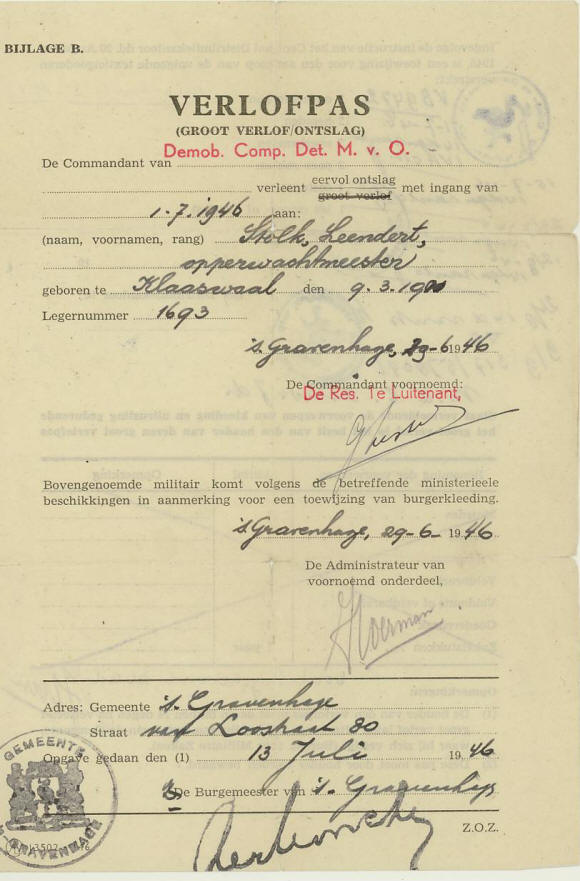 BIJLAGE B.
VERLOFPAS
(GROOT VERLOF/ONTSLAG)
De Commandant van Demob. Comp. Det. M. v. O.
verleent eervol ontslag groot verlof met ingang van
1.7.1946 aan:
(naam, voornamen, rang) Stolk, Leendert,
opperwachtmeester
geboren te Klaaswaal den 9.3.19
Legernummer 1693
's Gravenhage, 29-6 1946
De Commandant voornoemd:
De Res. 1e Luitenant,
Bovengenoemde militair komt volgens de betreffende ministerieele
beschikkingen in aanmerking voor een toewijzing van burgerkleeding.
's Gravenhage, 29-6- 1946
De Administrateur van
voornoemd onderdeel,
Adres: Gemeente 's Gravenhage
Straat van Loostraat 80
Opgave gedaan den (1) 13 Juli 1946
De Burgemeester van 's Gravenhage
Z.O.Z.
GEMEENTE
's-GRAVENHAGE